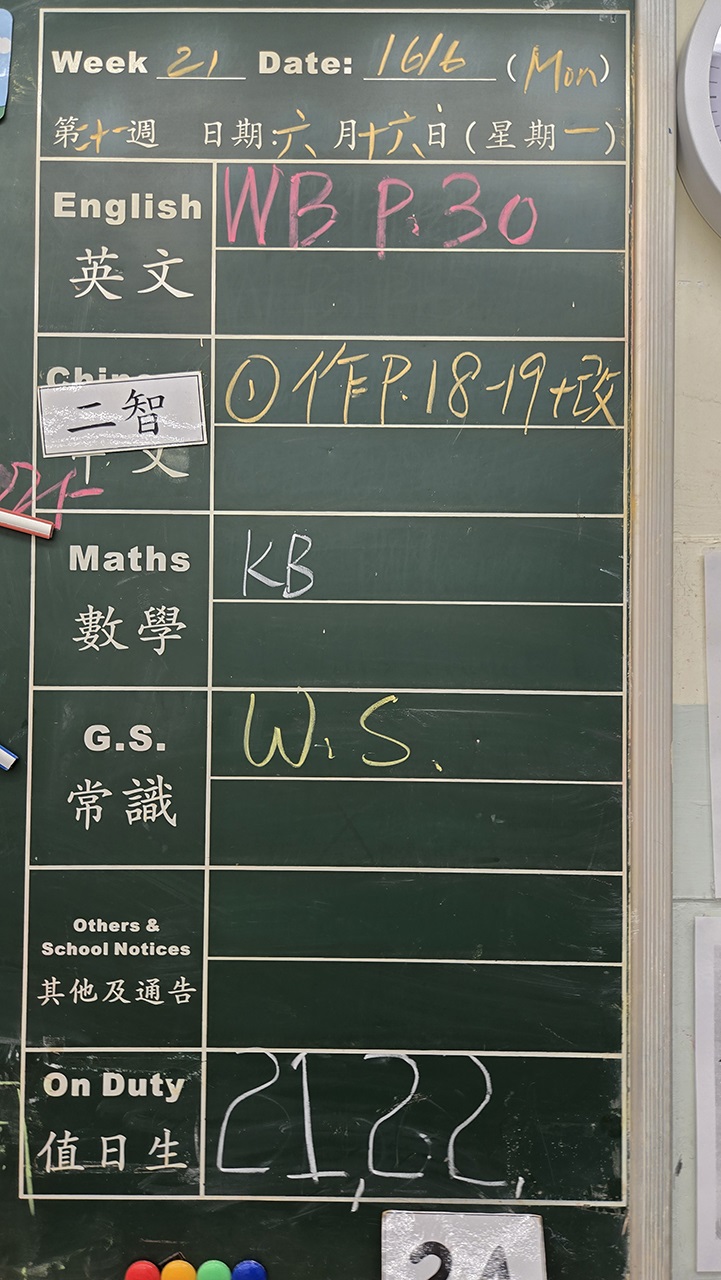 Week 21 Date: 16/6 (Mon)
第廿一週 日期:六月十六日(星期一)
English WB P.30
英文
①作P.18-19+改
二智
文
Maths KB
數學
G.S. W.S.
常識
Others &
School Notices
其他及通告
On Duty 21,22,
值日生
2A